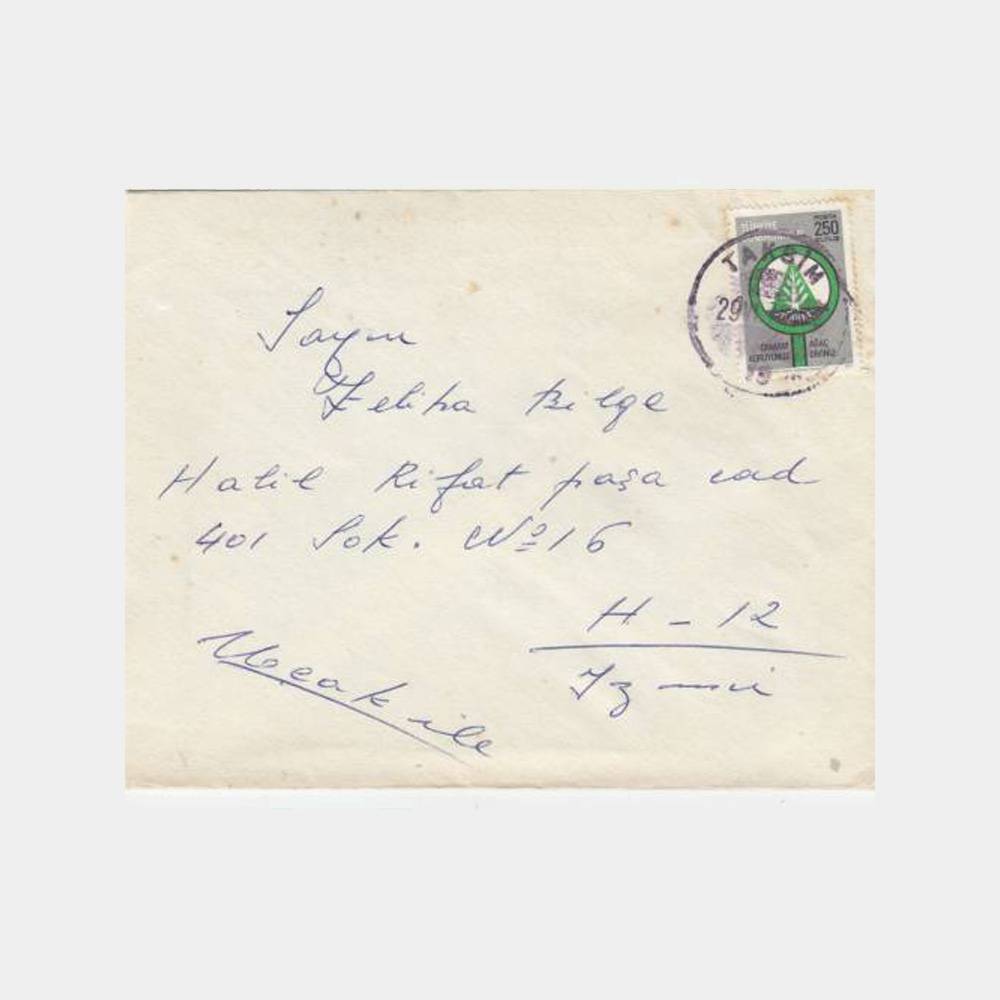 TÜRKİYE
POSTA
250
KURUŞ
TAKSİM
29
ORMANI KORUYUNUZ
AĞAÇ DİKİNİZ
Sayın
Zeliha Bilge
Halil Rifat paşa cad
401 Sok. Nº 16
H - 12
İzmir
Uçak ile